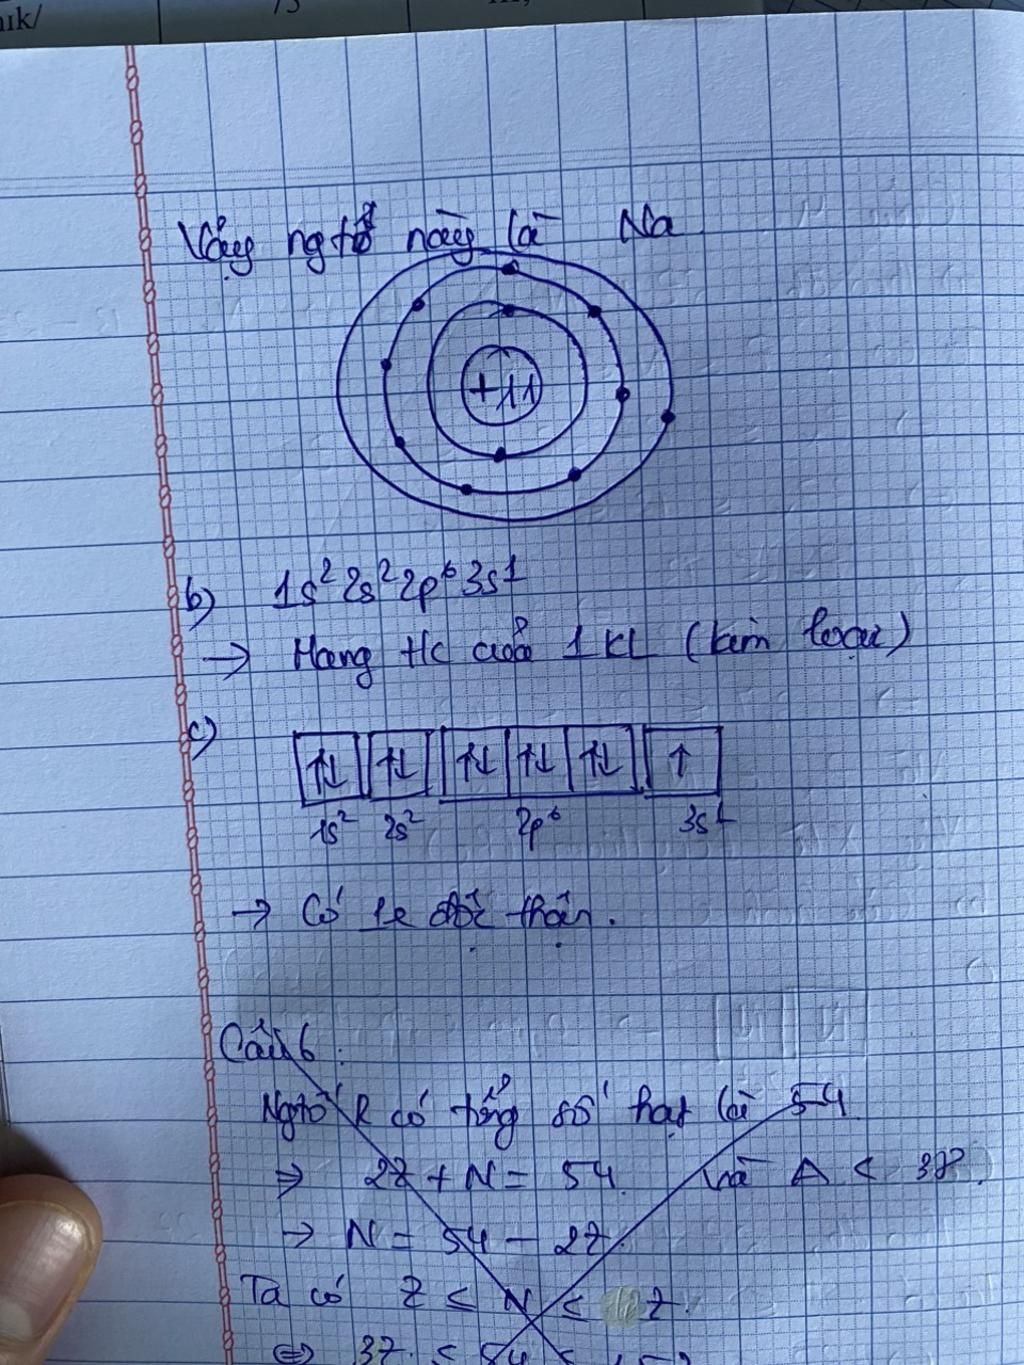 Vậy ngtử này là Na
+11
b) 1s² 2s² 2p⁶ 3s¹
→ Mang t/c của 1 KL (kim loại)
c)
↑↓ ↑↓ ↑↓ ↑↓ ↑↓ ↑
1s² 2s² 2p⁶ 3s¹
→ Có 1e độc thân.
Câu 6:
Ngtố R có tổng số hạt là 54
⇒ 2Z + N = 54. và A < 38.
→ N = 54 - 2Z.
Ta có Z ≤ N ≤ Z.
⇔ 3Z ≤ 54 ≤